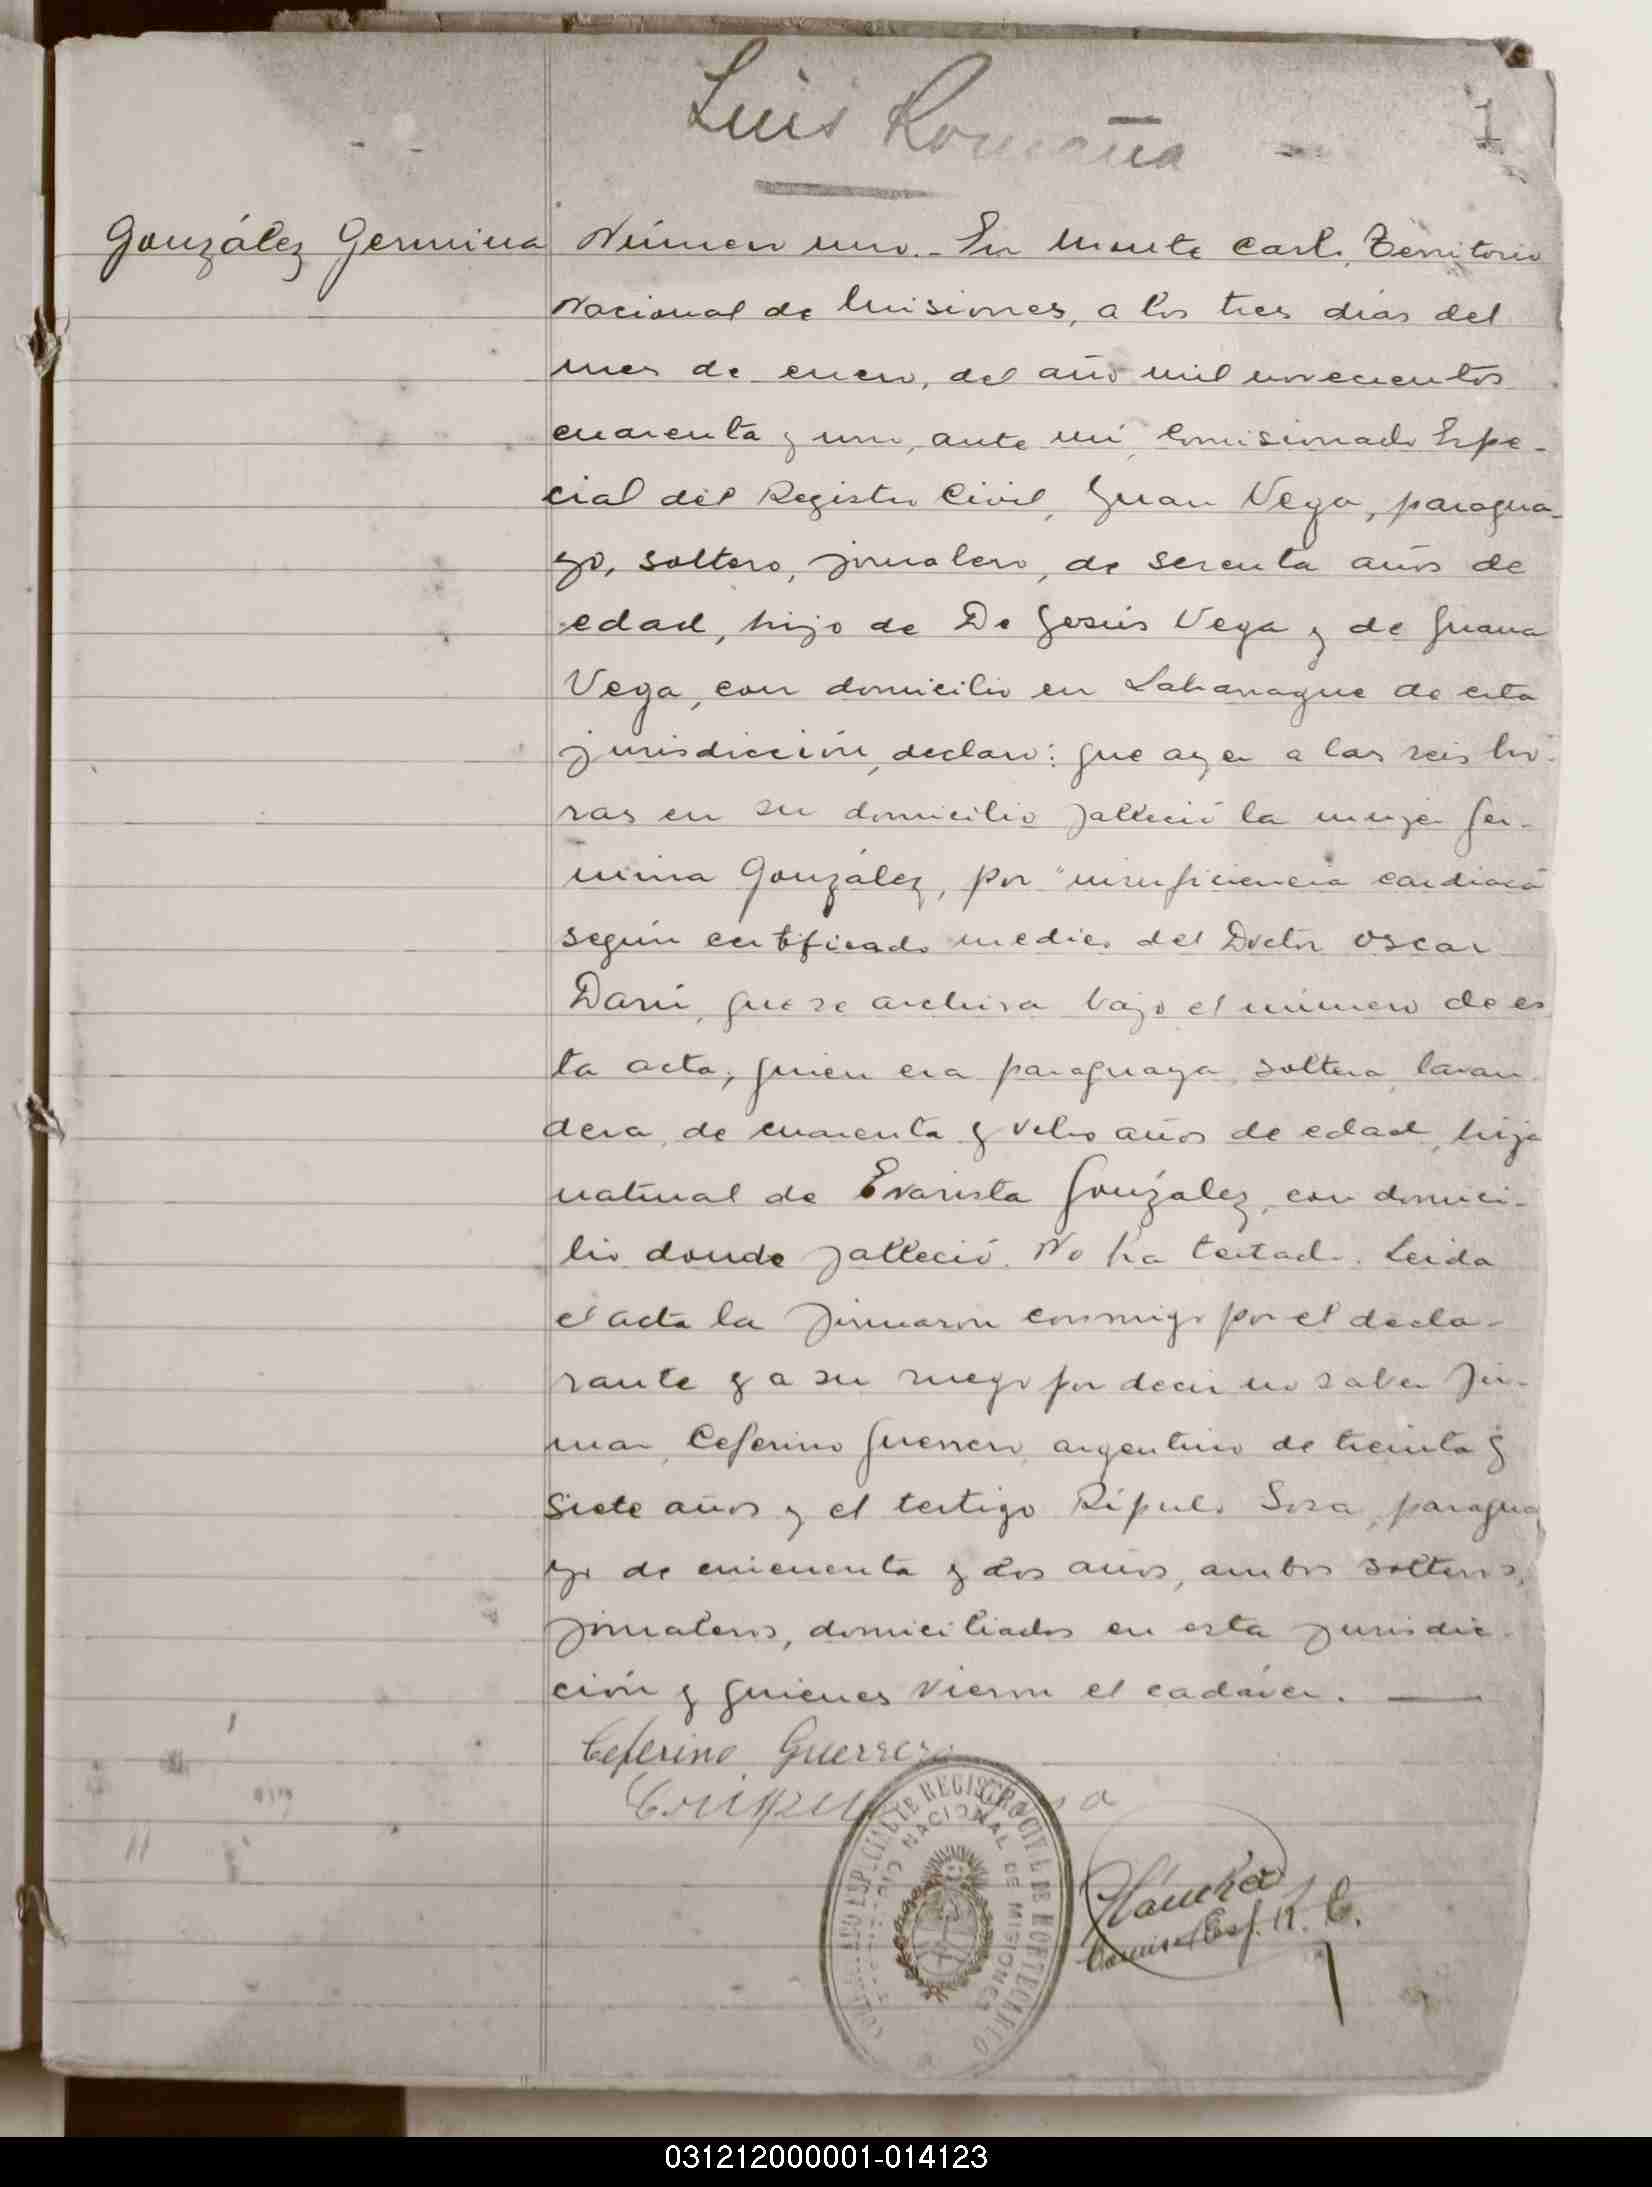 Luis Romaña
1
González Germina
Número uno.- En Monte Carlo, Territorio
Nacional de Misiones, a los tres días del
mes de enero, del año mil novecientos
cuarenta y uno, ante mí, Comisionado Espe-
cial del Registro Civil, Juan Vega, paragua-
yo, soltero, jornalero, de sesenta años de
edad, hijo de De Jesús Vega y de Juana
Vega, con domicilio en de esta
jurisdicción, declaró: que ayer a las seis ho-
ras en su domicilio falleció la mujer Ger-
mina González, por "insuficiencia cardiaca"
según certificado medico del Doctor Oscar
Darú, que se archiva bajo el número de es
ta acta, quien era paraguaya, soltera, lavan-
dera, de cuarenta y ocho años de edad, hija
natural de Evarista González, con domici-
lio donde falleció. No ha testado. Leida
el acta la firmaron conmigo por el decla-
rante y a su ruego por decir no saber fir-
mar, Ceferino Guerrero, argentino de treinta y
siete años y el testigo Sosa, paragua
yo de cincuenta y dos años, ambos solteros,
jornaleros, domiciliados en esta jurisdic-
ción y quienes vieron el cadáver.
Ceferino Guerrero
COMISIONADO ESPECIAL DE REGISTRO CIVIL DE MONTECARLO
TERRITORIO NACIONAL DE MISIONES
Comis. Esp. R. C.
031212000001-014123